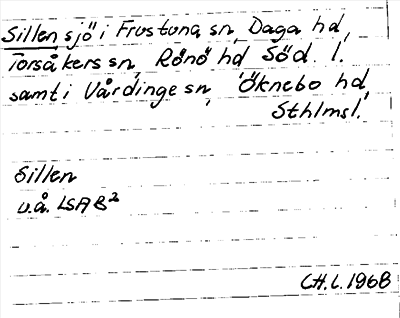 Sillen sjö i Frustuna sn, Daga hd,
Torsåkers sn, Rönö hd Söd. l.
samt i Vårdinge sn, Öknebo hd,
Sthlmsl.
Sillen
u.å. LSA B²
CH.L. 1968